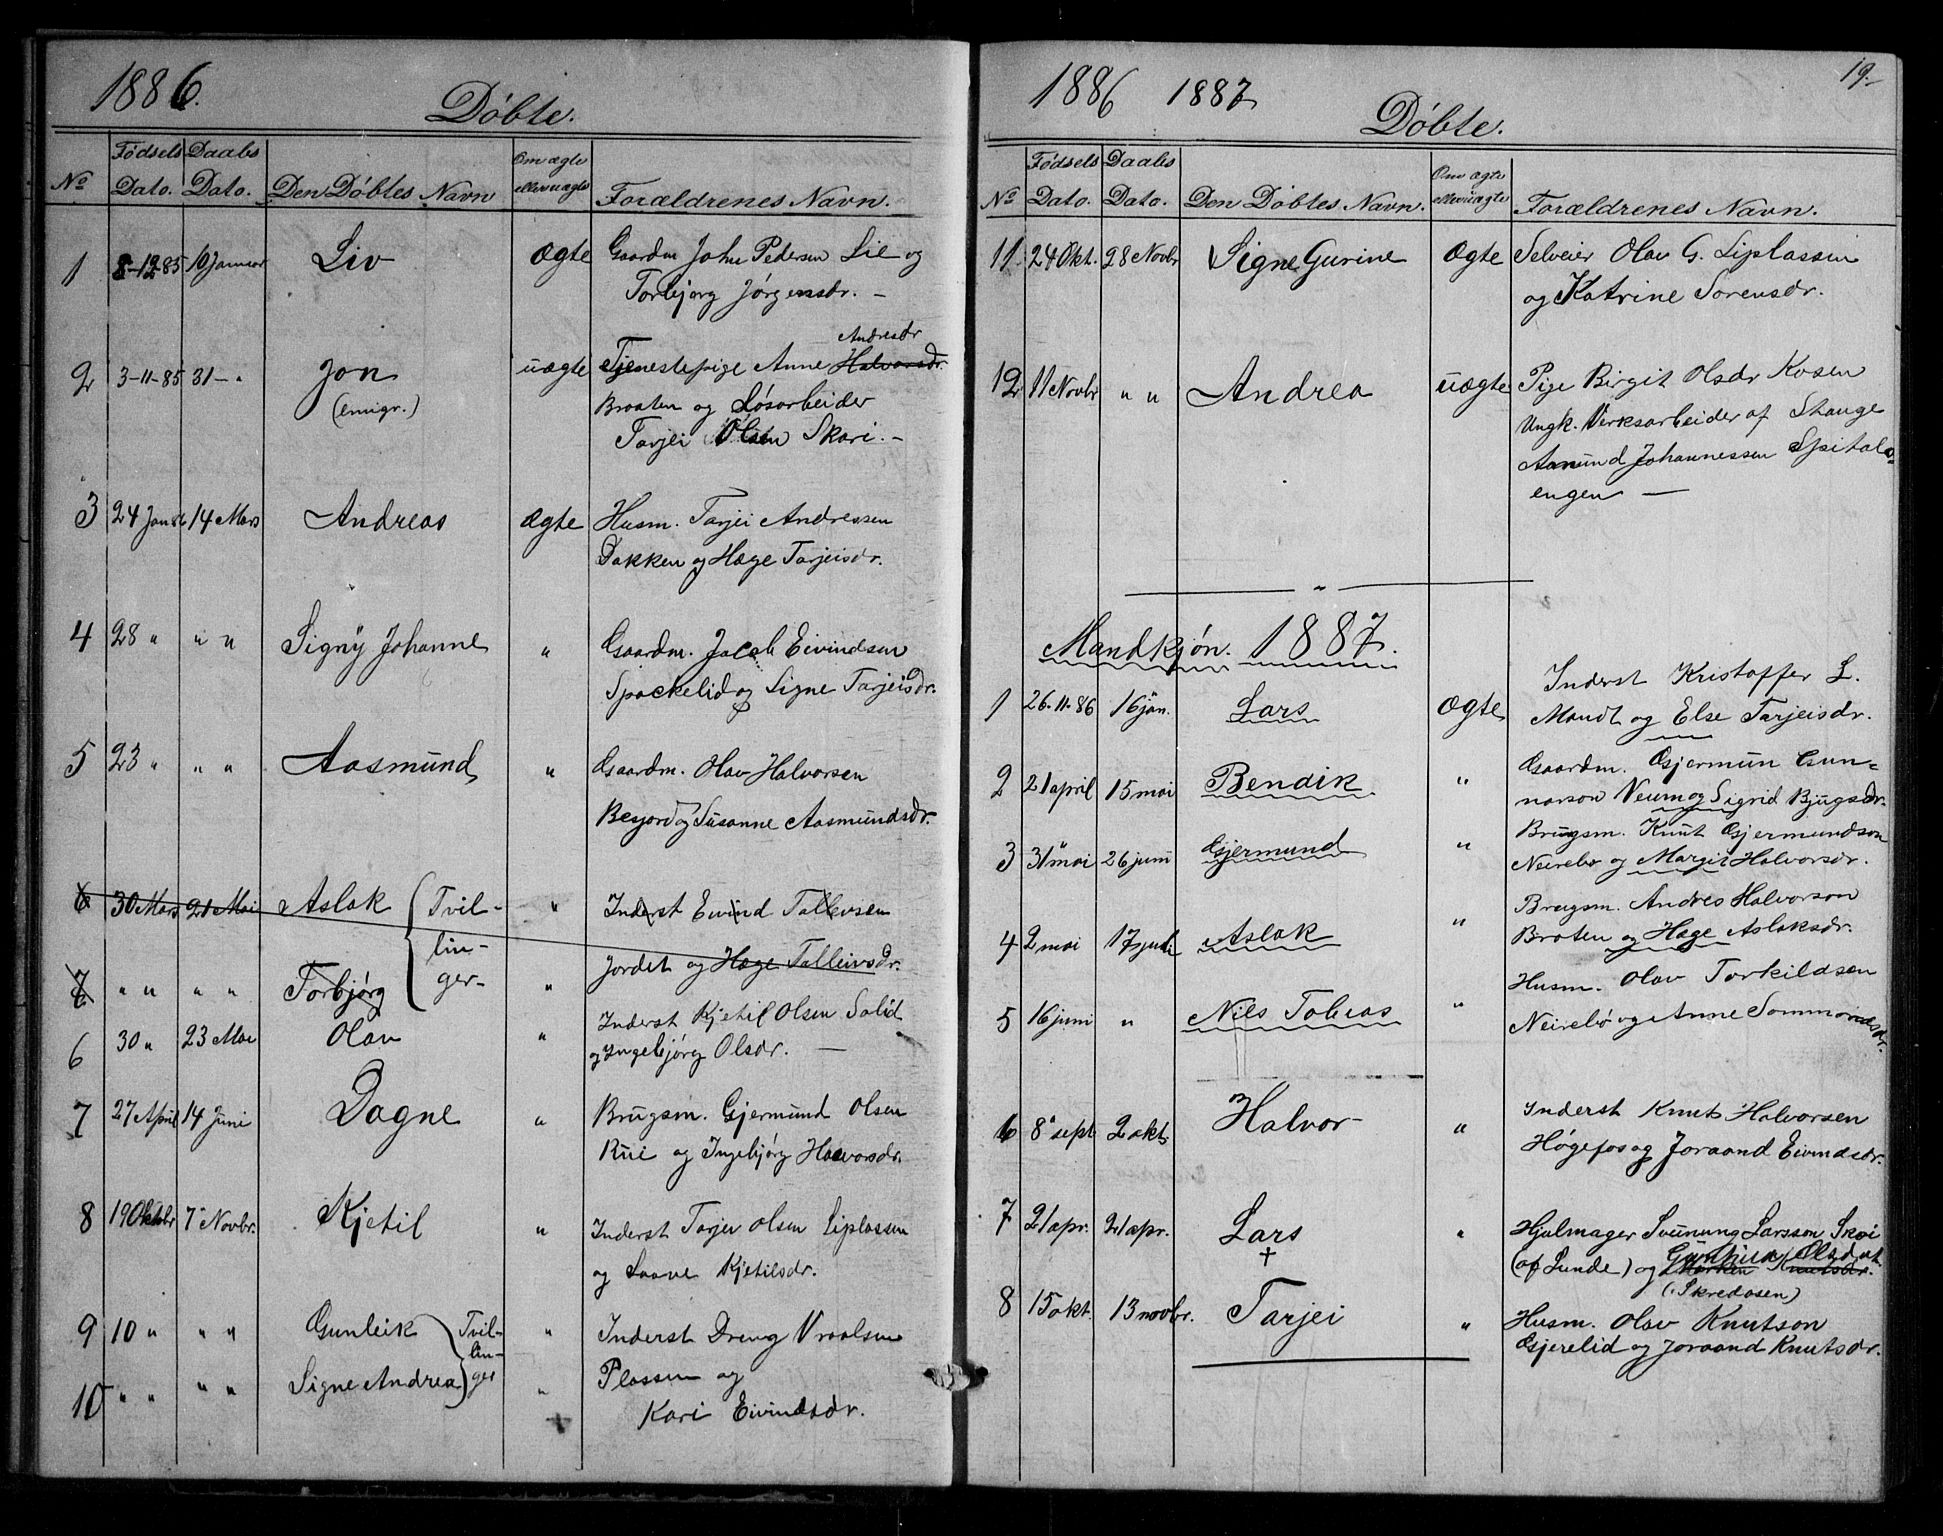 1886.
Döbte.
No
Födsels Dato.
Daabs Dato.
Den Döbtes Navn
Om ægte eller uægte
Forældrenes Navn.
1 8-12-85 10 Januar Liv Ægte Gaardm John Pedersen Lie og
Torbjørg Jørgensdr. -
Andresdr
2 3-11-85 31 - " Jon uægte Tjenestepige Anne Halvorsdr.
(emigr.) Braaten og Løsarbeider
Tarjei Olsen Skori. -
3 24 Jan 86 14 Mars Andreas Ægte Husm. Tarjei Andressen
Dokken og Hæge Tarjeisdr.
4 28 " " " Signÿ Johanne " Gaardm. Jacob Eivindsen
Spockelid og Signe Tarjeisdr.
5 23 " " " Aasmund " Gaardm. Olav Halvorsen
Besjord og Susanne Aasmundsdr.
6 30 Mars 21 Mai Aslak Tvil- " Inderst Eivind Tallevsen
lin-
Jordet og HægeТалleivsdr.
7 " " " " Torbjørg ger- "
6 30 " 23 Mai Olav " Inderst Kjetil Olsen Solid
og Ingebjørg Olsdr. -
7 27 April 14 Juni Dagne " Brugsm. Gjermund Olsen
Rui og Ingebjørg Halvorsdr.
8 19 Oktobr 7 Novbr. Kjetil " Inderst Tarjei Olsen Liplassen
og Saave Kjetilsdr.
9 10 " " " Gunleik Tvil- " Inderst Dreng Vraalsen
lin-
10 " " " " Signe Andrea ger " Plassen og
Kari Eivindsdr.
1886 1887
Döbte.
19.-
No
Fødsels Dato.
Daabs Dato.
Den Döbtes Navn.
Om ægte eller uægte
Forældrenes Navn.
11. 24 Okt. 28 Novbr Signe Gurine Ægte Selveier Olav G. Liplassen
og Katrine Sorensdr.
12 11 Novbr " " Andrea uægte Pige Birgit Olsdr Kosen
Ungk. Verksarbeider af Stange
Aamund Johannessen Spitals-
engen -
Mandkjøn. 1887.
1 26-11-86 16 jan. Lars Ægte Inderst Kristoffer L.
Mandt og Else Tarjeisdr.
2 21 april 15 mai Bendik. " Gaardm. Gjermun Gun-
narson Veum og Sigrid Bjugsdr.
3 31 mai 26 juni Gjermund " Brugsm. Knut Gjermundson
Neirebo og Margit Halvorsdr.
4 2 mai 17 juli Aslak " Brugsm. Andres Halvorson
Broten og Hæge Aslaksdr.
5 16 juni " Nils Tobias " Husm. Olav Torkildsen
Neirebø og Anne Sommundsdr.
6 8 sept 2 okt. Halvor - " Inderst Knut Halvorsen
Høgefos og Joraand Eivindsdr.
7 21 apr. 21 apr. Lars " Hjulmager Sveinung Larsson Skoi
+ (af Lunde) og Gunhild Olsdat.
Knutsdr.
(Skredosen)
8 15 okt. 13 novbr. Tarjei " Husm. Olav Knutson
Gjerelid og Joraand Knutsdr.